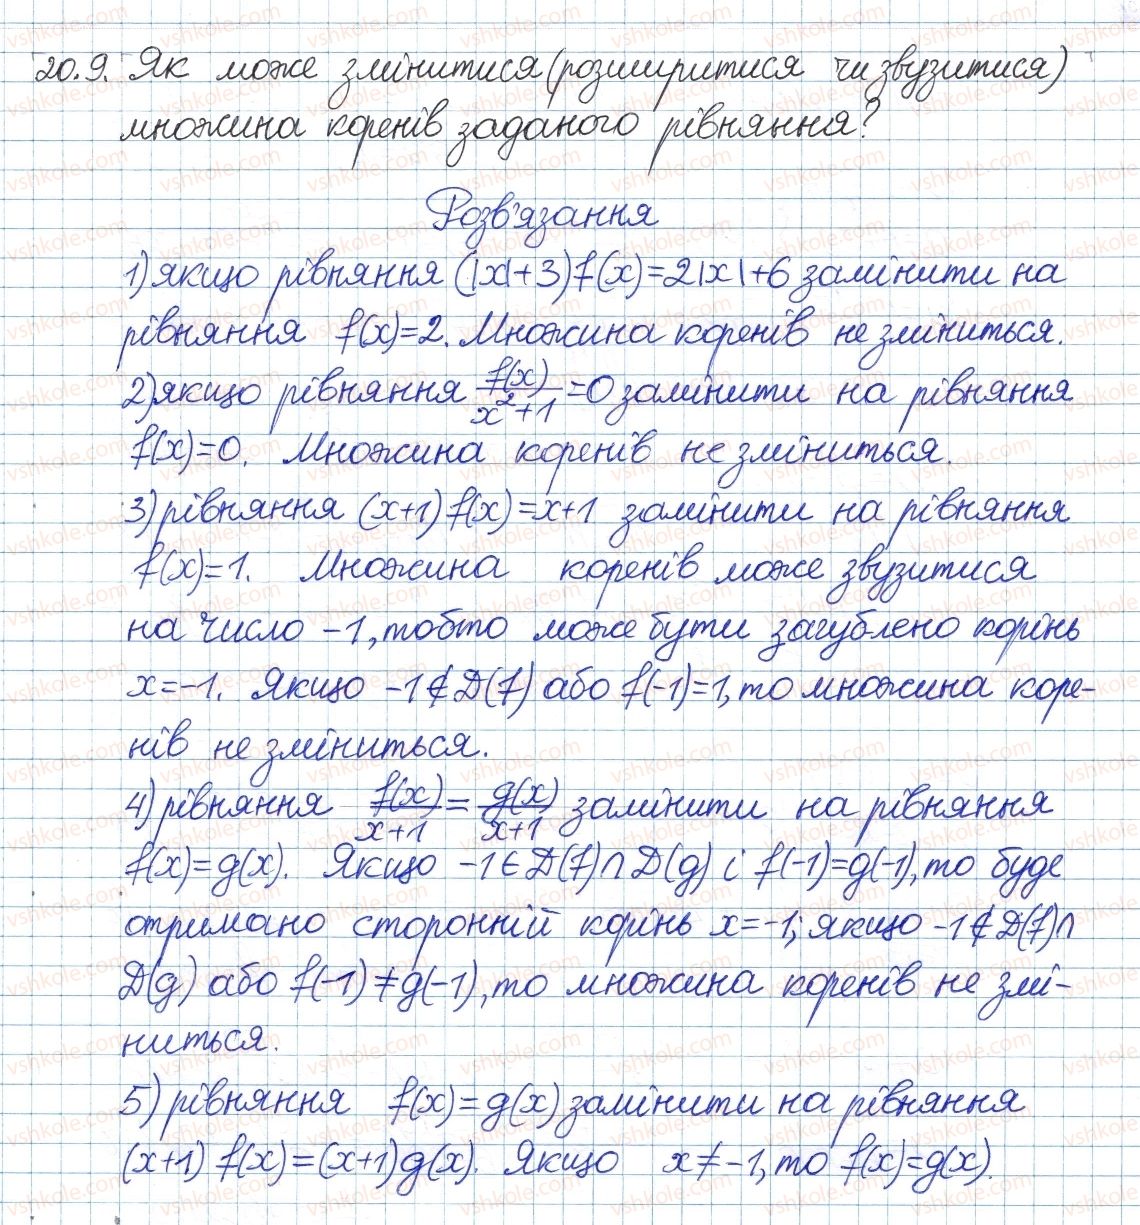 20.9. Як може змінитися (розширитися чи звузитися)
множина коренів заданого рівняння?
Розв'язання
1) якщо рівняння (|x|+3)f(x)=2|x|+6 замінити на
рівняння f(x)=2. Множина коренів не зміниться.
2) якщо рівняння f(x)/(x²+1)=0 замінити на рівняння
f(x)=0. Множина коренів не зміниться.
3) рівняння (x+1)f(x)=x+1 замінити на рівняння
f(x)=1. Множина коренів може звузитися
на число -1, тобто може бути загублено корінь
x=-1. Якщо -1∉D(f) або f(-1)=1, то множина коре-
нів не зміниться.
4) рівняння f(x)/(x+1)=g(x)/(x+1) замінити на рівняння
f(x)=g(x). Якщо -1∈D(f)∩D(g) і f(-1)=g(-1), то буде
отримано сторонній корінь x=-1; якщо -1∉D(f)∩
D(g) або f(-1)≠g(-1), то множина коренів не змі-
ниться.
5) рівняння f(x)=g(x) замінити на рівняння
(x+1)f(x)=(x+1)g(x). Якщо x≠-1, то f(x)=g(x).
vshkole.com